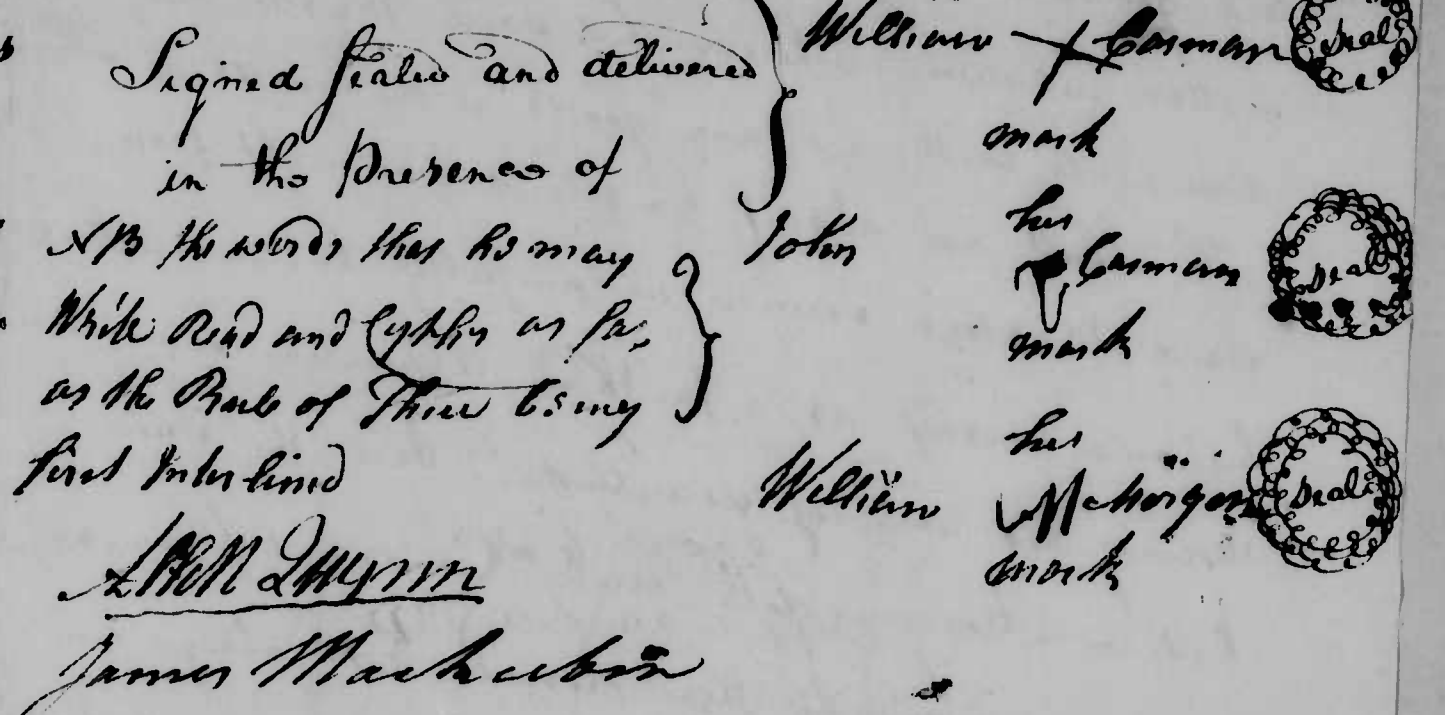 Signed Sealed and delivered
in the Presence of
NB the words that he may
Write Read and Cypher as far
as the Rule of Three being
first Interlined
Allen Quynn
James Mackubin
William Carman Seal
mark
his
John Carman Seal
mark
his
William Morgan Seal
mark